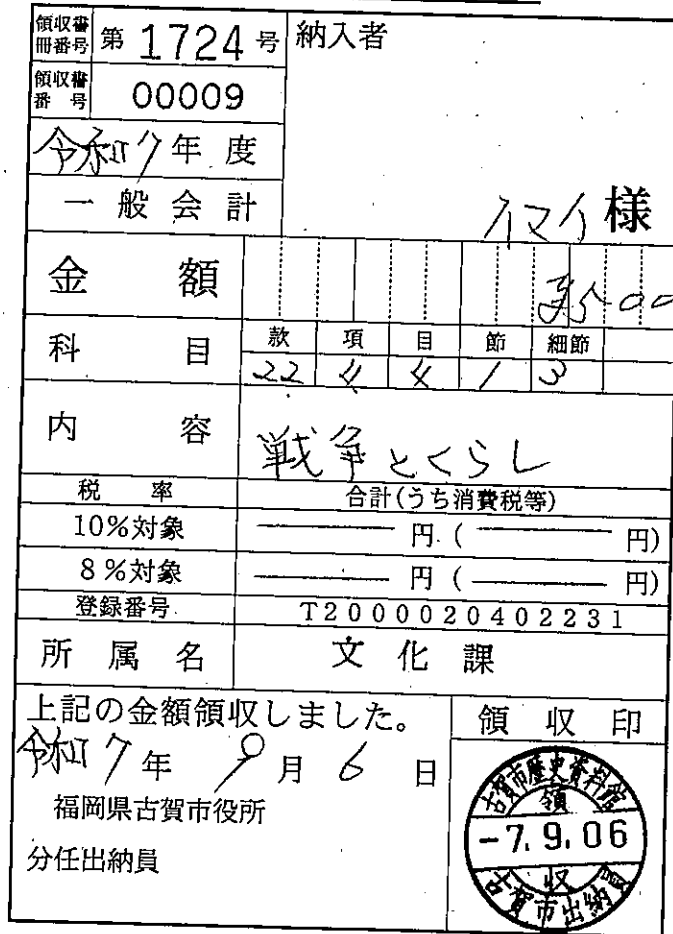 領収書冊番号 第 1724 号 納入者
領収書番号 00009
令和7年度
一般会計
イマイ 様
金額 ¥500
科目 款 項 目 節 細節
22 4 4 1 3
内容 戦争とくらし
税率 合計(うち消費税等)
10%対象 円 ( 円)
8%対象 円 ( 円)
登録番号 T2000020402231
所属名 文化課
上記の金額領収しました。 領収印
令和7年 9月 6日
福岡県古賀市役所
分任出納員
古賀市歴史資料館
領
-7.9.06
収
古賀市出納員